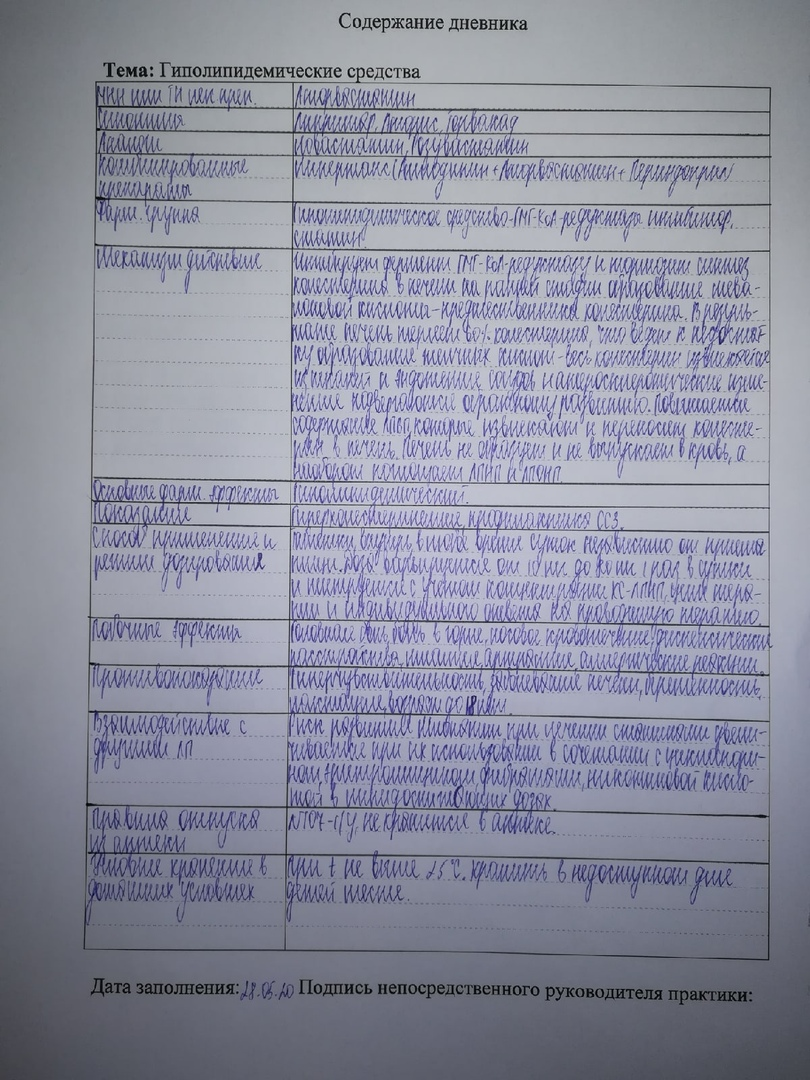 Содержание дневника
Тема: Гиполипидемические средства
МНН или ТН лек. преп. Аторвастатин
Синонимы Липримар, Аторис, Торвакард
Аналоги Ловастатин, Розувастатин
Комбинированные Липертанс (Амлодипин + Аторвастатин + Периндоприл)
препараты
Фарм. группа Гиполипидемическое средство-ГМГ-КоА-редуктазы ингибитор,
статин.
Механизм действие Ингибирует фермент ГМГ-КоА-редуктазу и
холестерина в печени на ранней стадии образование мева-
лоновой кислоты-предшественника холестерина. В резуль-
тате печень теряет холестерина, что ведет к недостат
ку образование желчных кислот-весь холестерин извлекается
из тканей и эндотелие сосудов и атеросклеротические изме-
нение подвергаются обратному развитию. Повышается
содержание ЛПВП, которые извлекают и переносят холесте-
рин в печень. Печень не образует и не выпускает в кровь, а
наоборот поглощает ЛПНП и ЛПОНП.
Основные фарм. эффекты Гиполипидемический.
Показание Гиперхолестеринемия, профилактика ССЗ.
Способ применение и Таблетки, внутрь, в любое время суток независимо от приема
режим дозирования пищи. Доза варьируется от 10 мг до 80 мг 1 раз в сутки
и титруется с учетом концентрации ХС-ЛПНП, цели тера-
пии и индивидуального ответа на проводимую терапию.
Побочные эффекты Головная боль, боль в горле, носовое кровотечение, диспепсические
расстройства, миалгия, артралгия, аллергические реакции.
Противопоказание Гиперчувствительность, заболевание печени, беременность,
лактация, возраст до 18 лет.
Взаимодействие с Риск развития миопатии при лечении статинами увели-
другими ЛП чивается при их использовании в сочетании с циклоспори-
ном, эритромицином, фибратами, никотиновой кисло-
той в липидоснижающих дозах.
Правила отпуска №107-1/у, не хранится в аптеке.
из аптеки
Условие хранение в При t не выше 25°С. Хранить в недоступном для
домашних условиях детей месте.
Дата заполнения: 28.05.20 Подпись непосредственного руководителя практики: